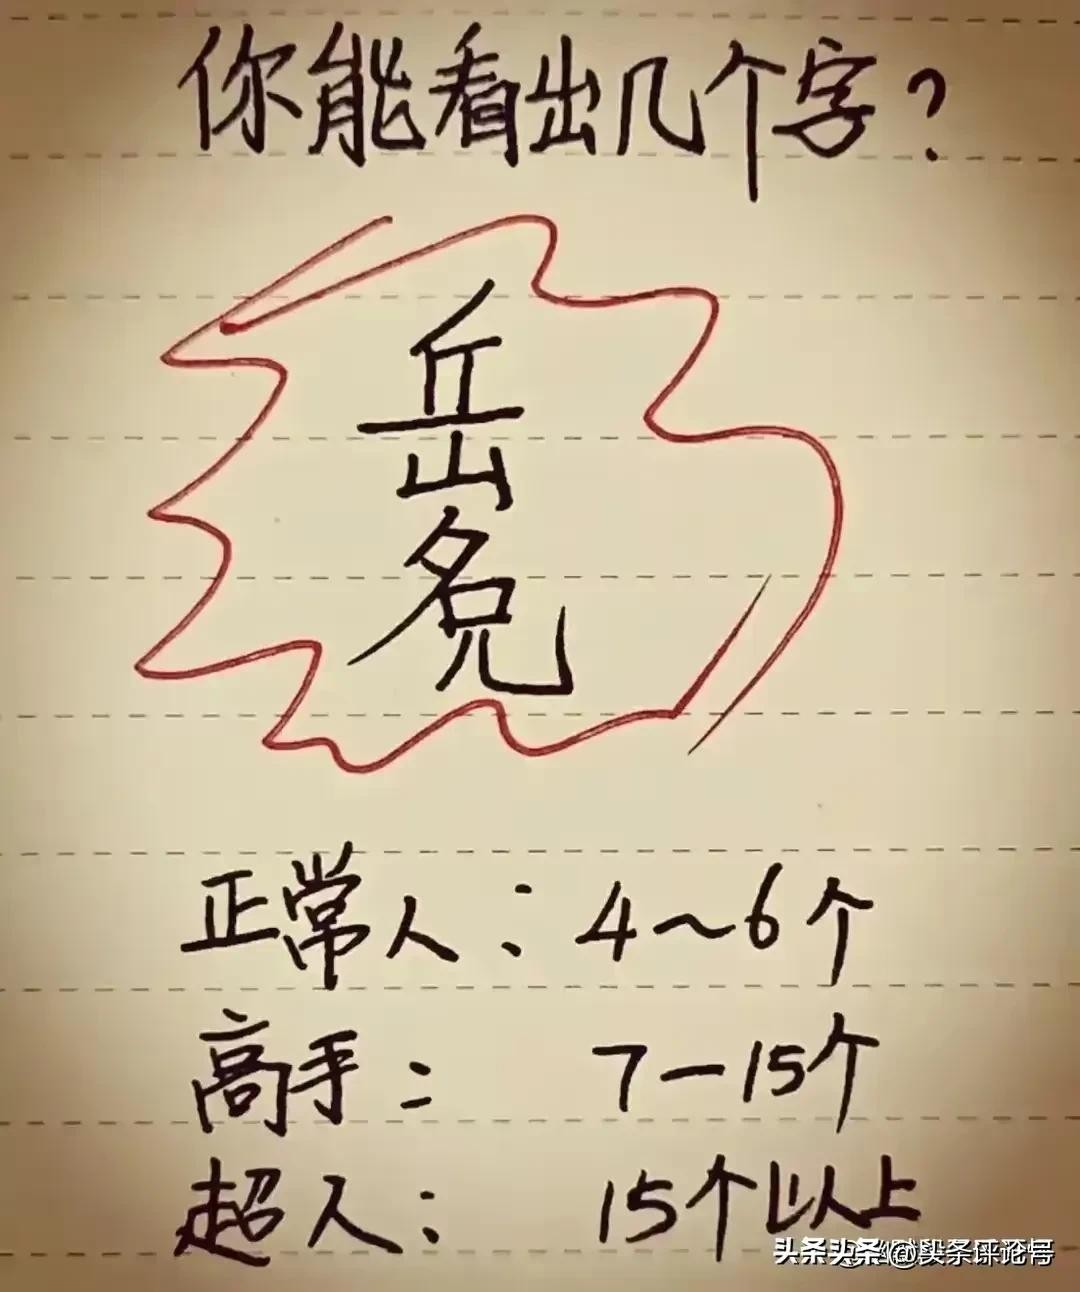 你能看出几个字?
岳
名
儿
正常人:4~6个
高手:7-15个
超人:15个以上
头条头条@头条评论号